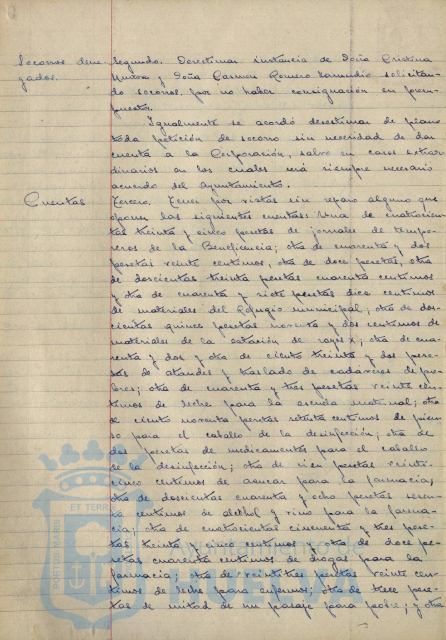 Socorros dene-
gados.
Segundo. Desestimar instancia de Doña Cristina
y Doña Carmen Romero solicitan-
do socorros, por no haber consignación en presu-
puestos.
Igualmente se acordó desestimar de plano
toda petición de socorro sin necesidad de dar
cuenta a la Corporación, salvo en casos extraor-
dinarios en los cuales será siempre necesario
acuerdo del Ayuntamiento.
Cuentas
Tercero. Tener por vistas sin reparo alguno que
oponer las siguientes cuentas: Una de cuatrocien-
tas treinta y cinco pesetas de jornales de tempo-
reros de la Beneficencia; otra de cuarenta y dos
pesetas veinte centimos, otra de doce pesetas, otra
de doscientas treinta pesetas cuarenta centimos
y otra de cuarenta y siete pesetas diez centimos
de materiales del Refugio municipal; otra de dos-
cientas quince pesetas noventa y dos centimos de
materiales de la estación de rayos x; otra de cua-
renta y dos y otra de ciento treinta y dos pese-
tas de ataudes y traslado de cadáveres de po-
bres; otra de cuarenta y tres pesetas veinte cen-
timos de leche para la escuela maternal; otra
de ciento noventa pesetas setenta centimos de pien-
so para el caballo de la desinfección; otra de
dos pesetas de medicamentos para el caballo
de la desinfección; otra de cien pesetas veinti-
cinco centimos de azucar para la farmacia,
otra de doscientas cuarenta y ocho pesetas seten-
ta centimos de alcohol y vino para la farma-
cia; otra de cuatrocientas cincuenta y tres pese-
tas treinta y cinco centimos y otra de doce pe-
setas cuarenta centimos de drogas para la
farmacia; otra de veintitres pesetas veinte cen-
timos de leche para enfermos; otra de trece pese-
tas de mitad de un pasaje para pobre; y otra